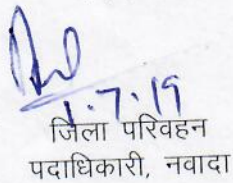 1.7.19
जिला परिवहन
पदाधिकारी, नवादा